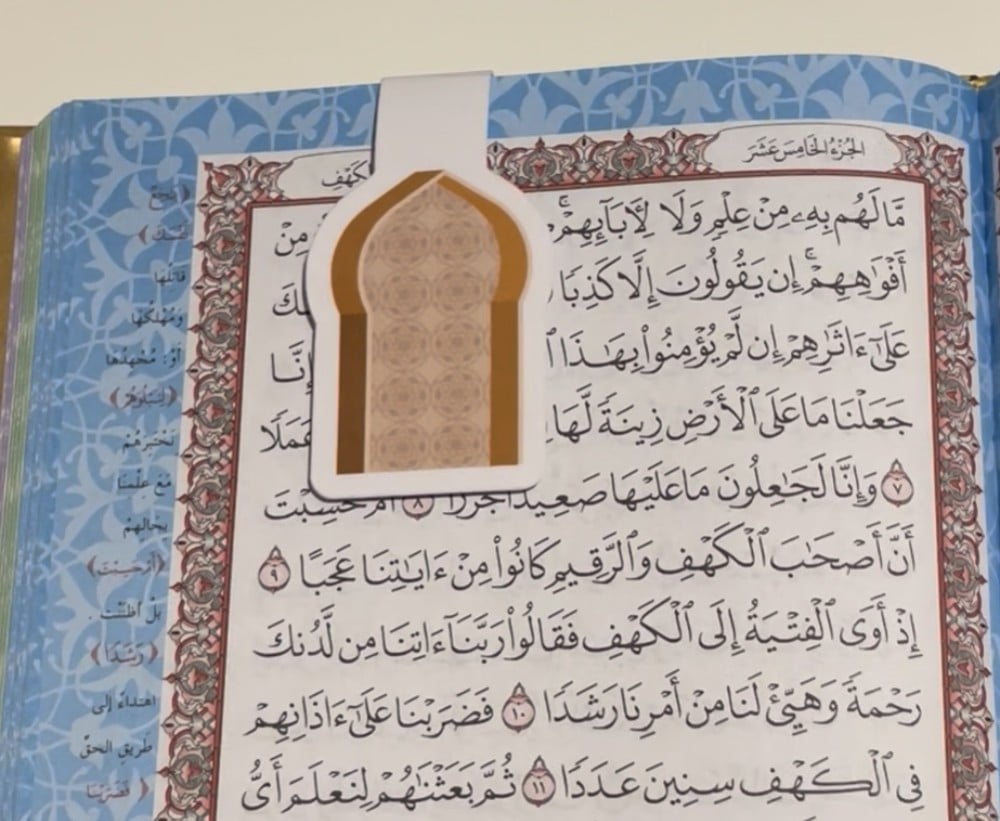 الجُزْءُ الخَامِسَ عَشَرَ
مَّا لَهُم بِهِۦ مِنْ عِلْمٍ وَلَا لِأَبَآئِهِمْۚ مِنْ
أَفْوَٰهِهِمْۚ إِن يَقُولُونَ إِلَّا كَذِبًا
عَلَىٰٓ ءَاثَٰرِهِمْ إِن لَّمْ يُؤْمِنُوا۟ بِهَٰذَا إِنَّا
جَعَلْنَا مَا عَلَى ٱلْأَرْضِ زِينَةً لَّهَا عَمَلًا
٧ وَإِنَّا لَجَٰعِلُونَ مَا عَلَيْهَا صَعِيدًا جُرُزًا ٨ أَمْ حَسِبْتَ
أَنَّ أَصْحَٰبَ ٱلْكَهْفِ وَٱلرَّقِيمِ كَانُوا۟ مِنْ ءَايَٰتِنَا عَجَبًا ٩
إِذْ أَوَى ٱلْفِتْيَةُ إِلَى ٱلْكَهْفِ فَقَالُوا۟ رَبَّنَآ ءَاتِنَا مِن لَّدُنكَ
رَحْمَةً وَهَيِّئْ لَنَا مِنْ أَمْرِنَا رَشَدًا ١٠ فَضَرَبْنَا عَلَىٰٓ ءَاذَانِهِمْ
فِى ٱلْكَهْفِ سِنِينَ عَدَدًا ١١ ثُمَّ بَعَثْنَٰهُمْ لِنَعْلَمَ أَىُّ
قاتلها
ومُهْلكها
أوْ: مُجْهِدُها
﴿لِنَبْلُوَهُمْ﴾
نَختَبرهُم
مَع عِلْمنا
بحالهِمْ
﴿أَمْ حَسِبْتَ﴾
بل أظننت
﴿رَشَدًا﴾
اهتداءً إلى
طريقِ الحقّ
﴿فَضَرَبْنَا